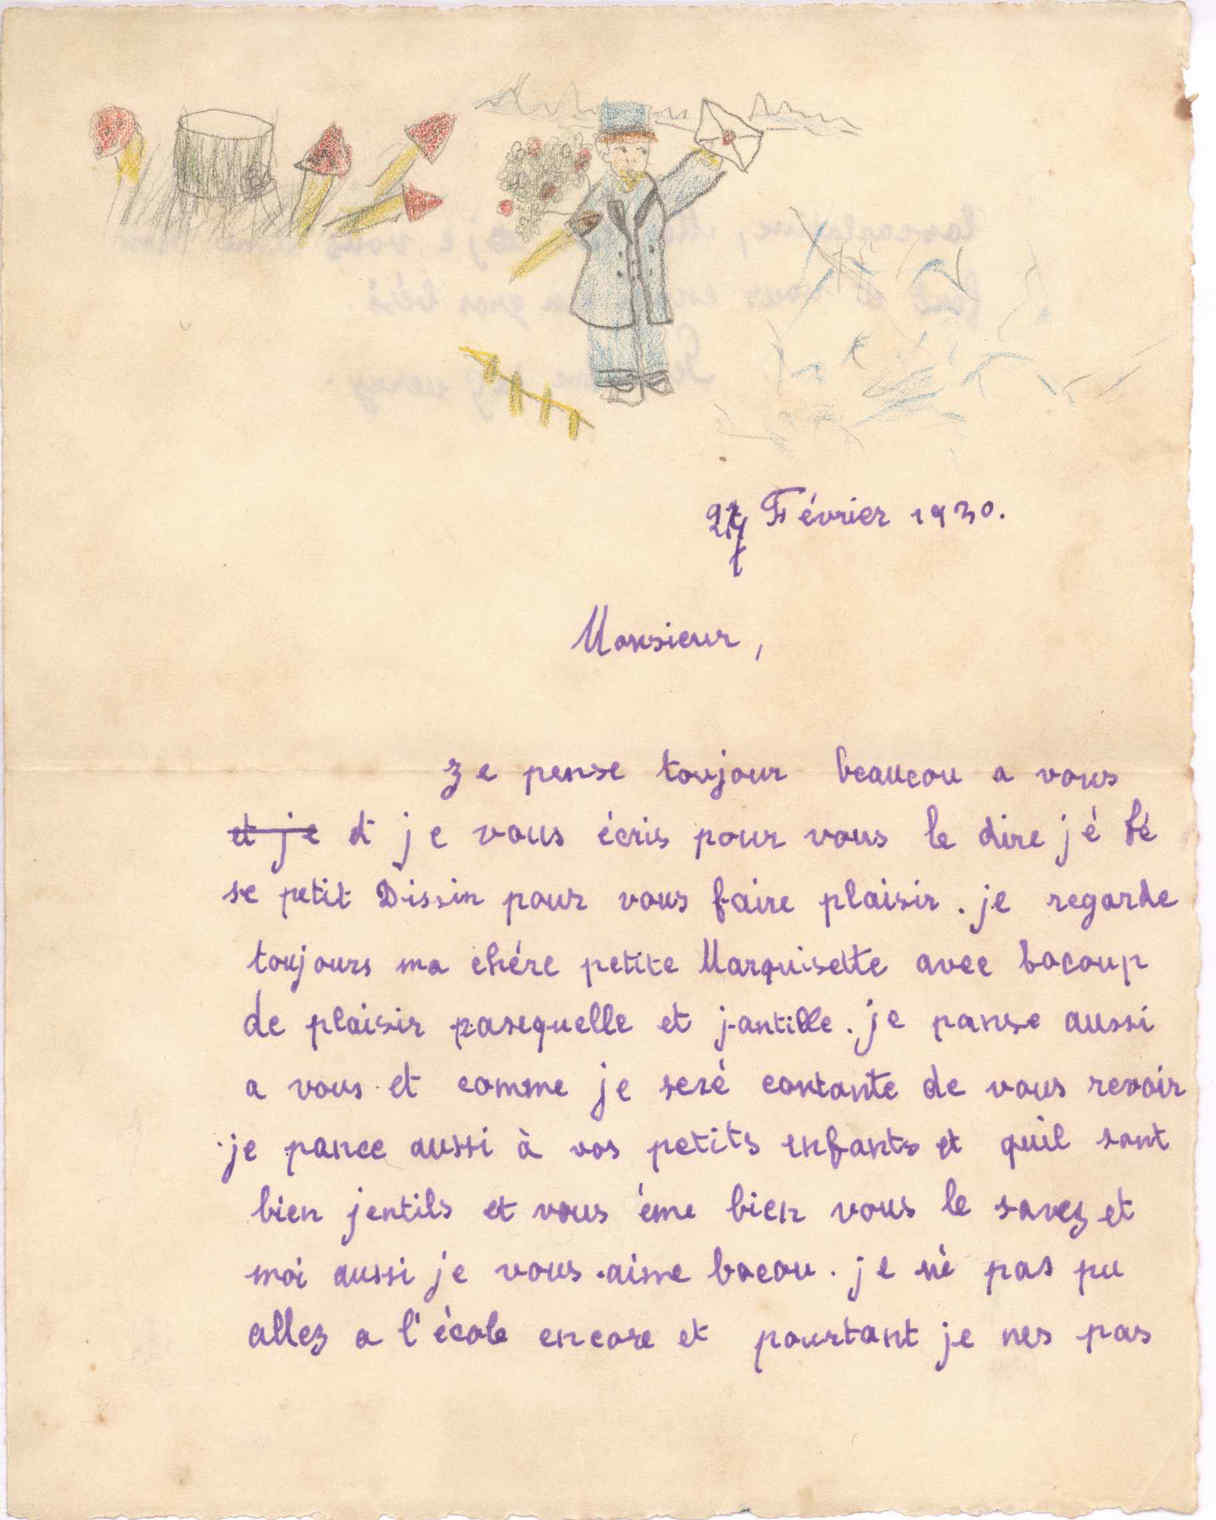 27 Février 1930.
Monsieur,
Je pense toujour beaucou a vous
et je et je vous écris pour vous le dire jé fé
se petit Dissin pour vous faire plaisir. je regarde
toujours ma chére petite Marquisette avec bocoup
de plaisir pasequelle et jantille. je panse aussi
a vous et comme je seré contante de vous revoir
je pance aussi à vos petits enfants et quil sont
bien jentils et vous éme bien vous le savez et
moi aussi je vous aime bocou. je né pas pu
allez a l'école encore et pourtant je nes pas